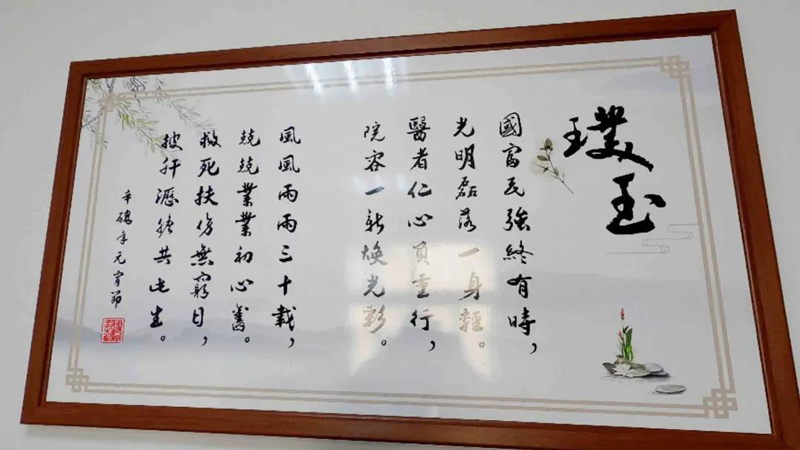 璞玉
國富民強終有時，
光明磊落一身輕。
醫者仁心負重行，
院容一新煥光彩。
風風雨雨三十載，
兢兢業業初心舊。
救死扶傷無窮日，
披肝瀝膽共此生。
年元宵節